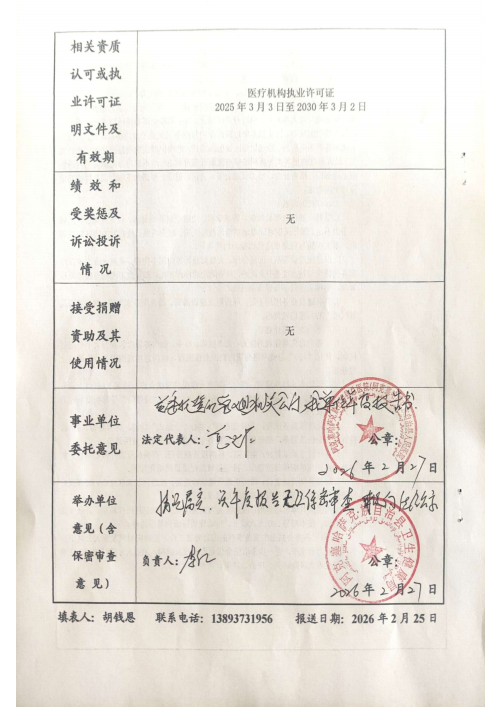 相关资质
认可或执
业许可证
明文件及
有效期
医疗机构执业许可证
2025年3月3日至2030年3月2日
绩效和
受奖惩及
诉讼投诉
情况
无
接受捐赠
资助及其
使用情况
无
事业单位
委托意见
法定代表人：
公章：
2026年2月27日
举办单位
意见（含
保密审查
意见）
情况属实，该年度报告无 保密审查
负责人：
公章：
阿克塞哈萨克族自治县卫生健康局
2026年2月27日
填表人：胡钱恩 联系电话：13893731956 报送日期：2026年2月25日